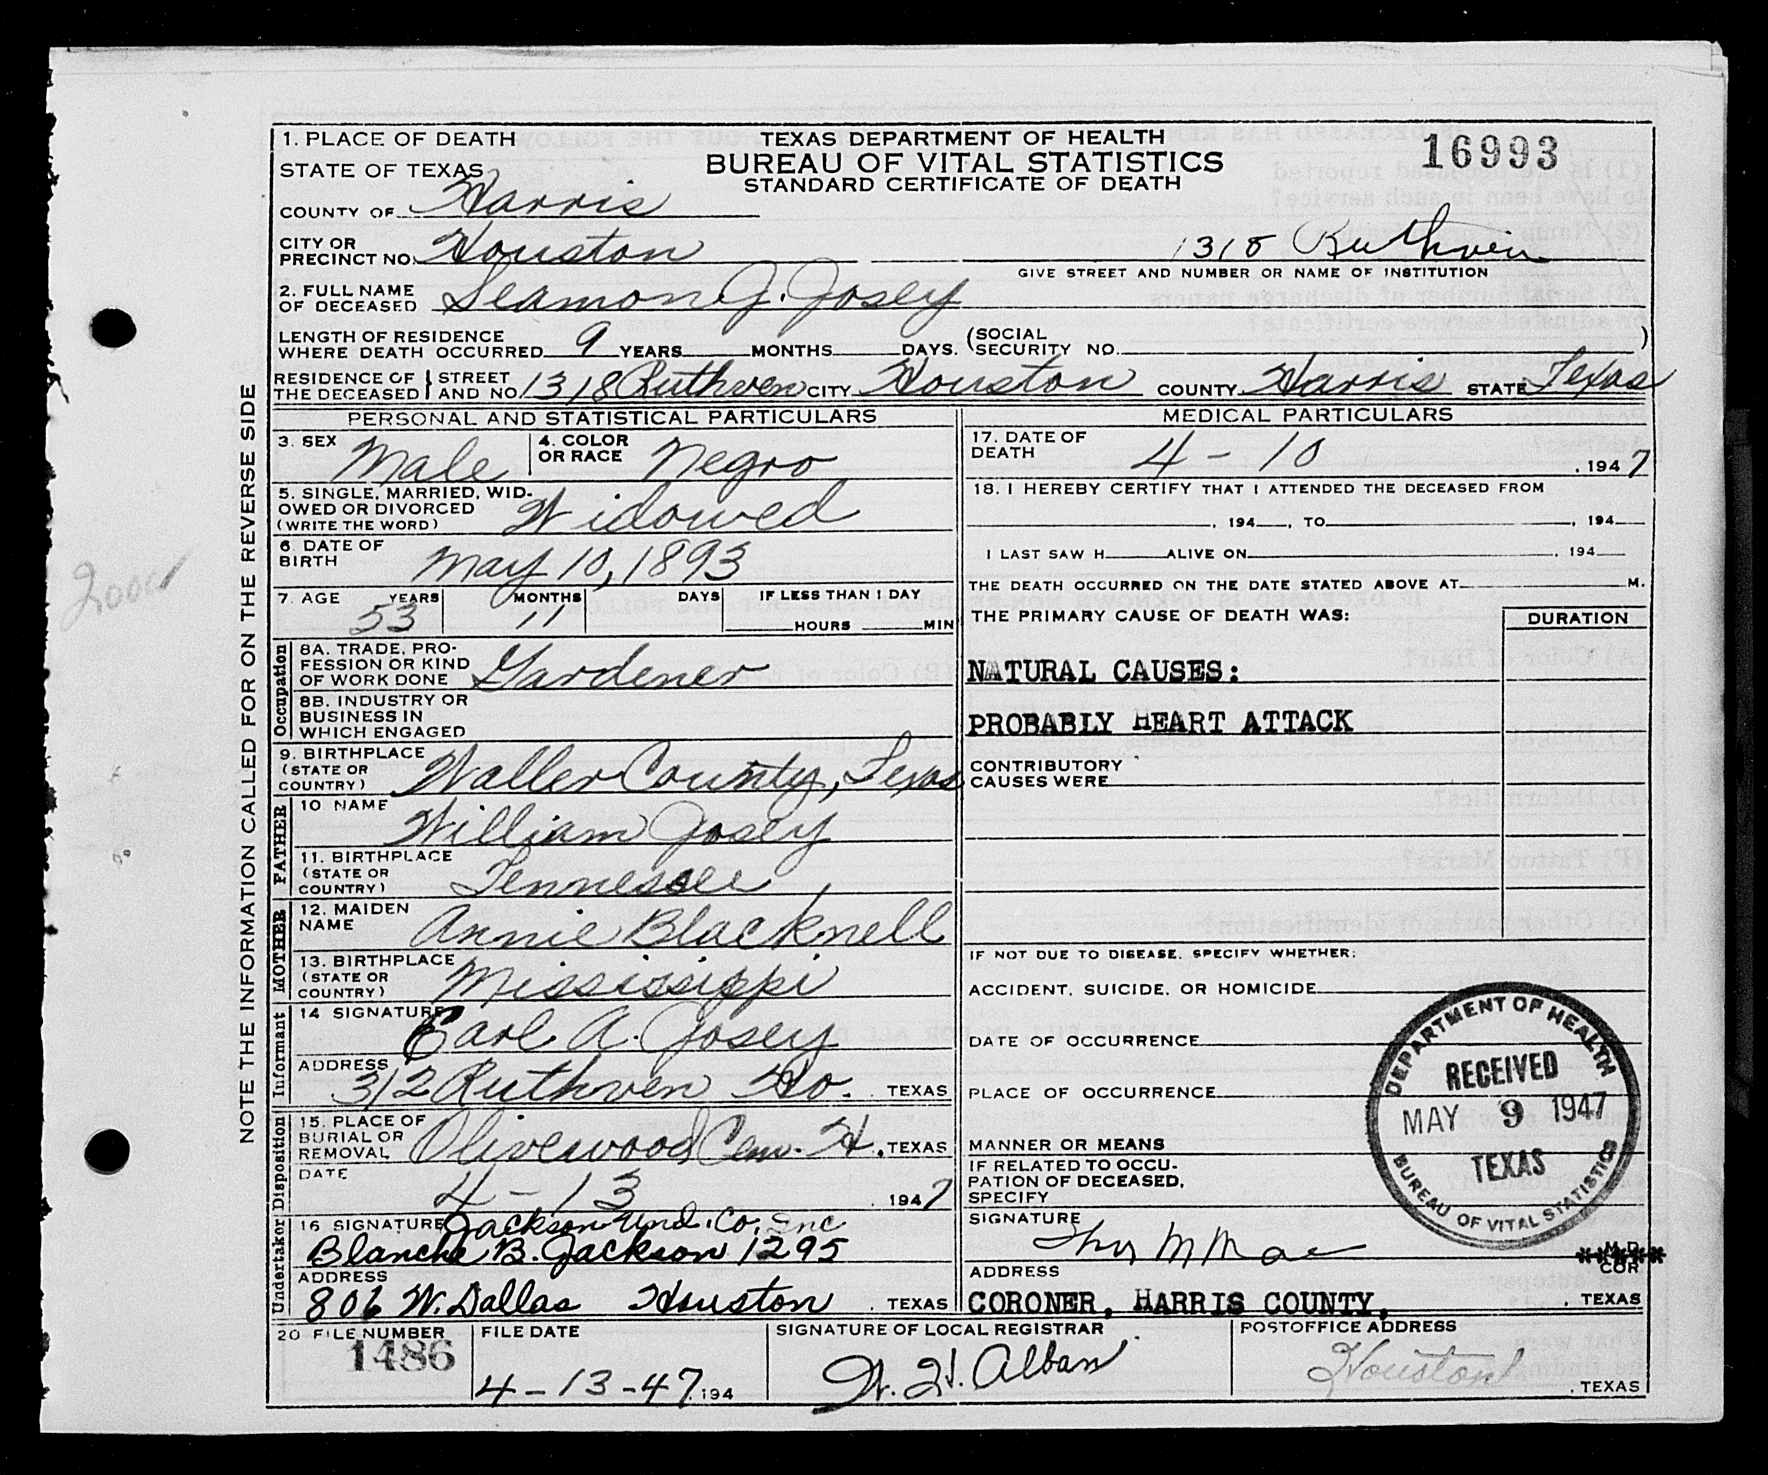 1. PLACE OF DEATH
STATE OF TEXAS
TEXAS DEPARTMENT OF HEALTH
BUREAU OF VITAL STATISTICS
STANDARD CERTIFICATE OF DEATH
16993
COUNTY OF Harris
CITY OR PRECINCT NO. Houston 1318 Ruthven
GIVE STREET AND NUMBER OR NAME OF INSTITUTION
2. FULL NAME OF DECEASED Seamon J. Josey
LENGTH OF RESIDENCE WHERE DEATH OCCURRED 9 YEARS MONTHS DAYS. (SOCIAL SECURITY NO. )
RESIDENCE OF THE DECEASED STREET AND NO. 1318 Ruthven CITY Houston COUNTY Harris STATE Texas
PERSONAL AND STATISTICAL PARTICULARS
3. SEX Male 4. COLOR OR RACE Negro
5. SINGLE, MARRIED, WIDOWED OR DIVORCED (WRITE THE WORD) Widowed
6. DATE OF BIRTH May 10, 1893
7. AGE YEARS MONTHS DAYS IF LESS THAN 1 DAY
53 11 HOURS MIN
Occupation
8A. TRADE, PROFESSION OR KIND OF WORK DONE Gardener
8B. INDUSTRY OR BUSINESS IN WHICH ENGAGED
9. BIRTHPLACE (STATE OR COUNTRY) Waller County, Texas
FATHER
10 NAME William Josey
11. BIRTHPLACE (STATE OR COUNTRY) Tennessee
MOTHER
12. MAIDEN NAME Annie Blacknell
13. BIRTHPLACE (STATE OR COUNTRY) Mississippi
Informant
14 SIGNATURE Earl A. Josey
ADDRESS 312 Ruthven Ho. TEXAS
Disposition
15. PLACE OF BURIAL OR REMOVAL Olivewood Cem. H. TEXAS
DATE 4-13 1947
Undertaker
16 SIGNATURE Jackson Und. Co. Inc
Blanche B. Jackson 1295
ADDRESS
806 W. Dallas Houston TEXAS
MEDICAL PARTICULARS
17. DATE OF DEATH 4-10, 1947
18. I HEREBY CERTIFY THAT I ATTENDED THE DECEASED FROM
, 194 , TO , 194
I LAST SAW H ALIVE ON , 194
THE DEATH OCCURRED ON THE DATE STATED ABOVE AT M.
THE PRIMARY CAUSE OF DEATH WAS: DURATION
NATURAL CAUSES:
PROBABLY HEART ATTACK
CONTRIBUTORY CAUSES WERE
IF NOT DUE TO DISEASE, SPECIFY WHETHER:
ACCIDENT, SUICIDE, OR HOMICIDE
DATE OF OCCURRENCE
PLACE OF OCCURRENCE
MANNER OR MEANS
IF RELATED TO OCCUPATION OF DECEASED, SPECIFY
SIGNATURE
M.D.
COR
ADDRESS
CORONER, HARRIS COUNTY, TEXAS
DEPARTMENT OF HEALTH
RECEIVED
MAY 9 1947
TEXAS
BUREAU OF VITAL STATISTICS
20 FILE NUMBER 1486
FILE DATE 4-13-47 194
SIGNATURE OF LOCAL REGISTRAR W. H. Alban
POSTOFFICE ADDRESS Houston, TEXAS
NOTE THE INFORMATION CALLED FOR ON THE REVERSE SIDE